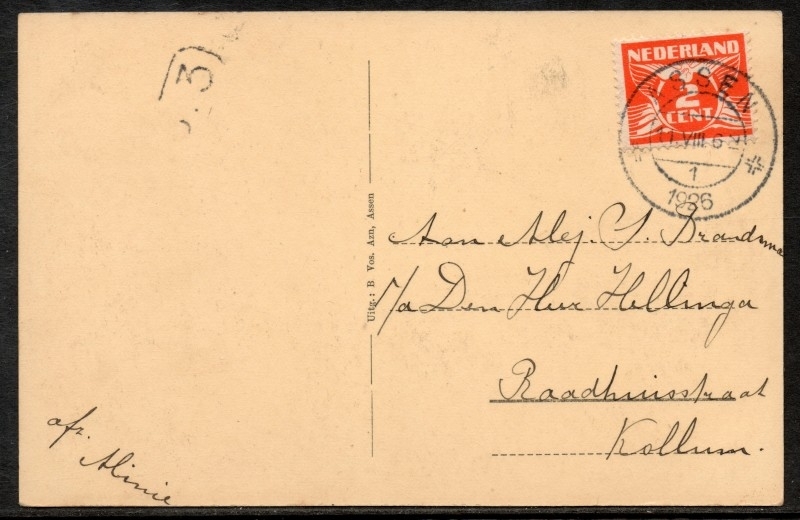 .3
NEDERLAND
2
CENT
ASSEN
VIII.6
1
1926
Aan Mej. S. Brandsma
P/a Den Heer Hellinga
Raadhuisstraat
Kollum.
Uitg.: B. Vos. Azn, Assen
afz.
Alinie